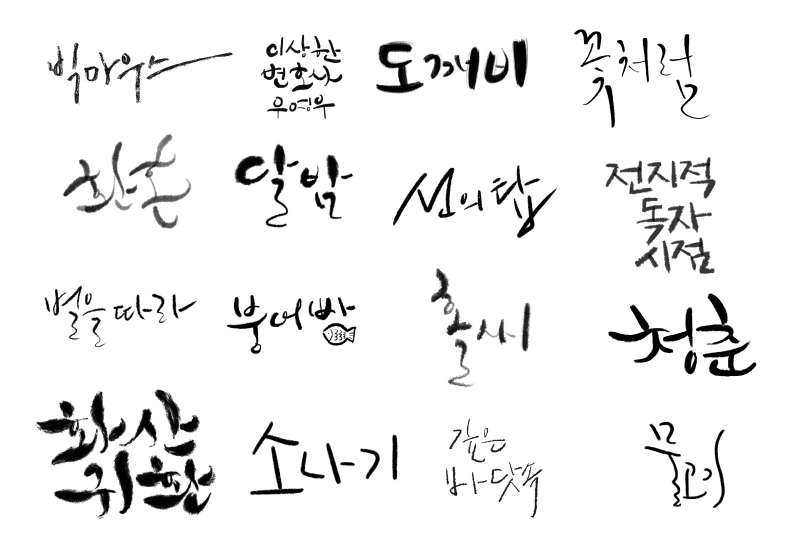 빅마우스
이상한
변호사
우영우
도깨비
꽃처럼
환혼
달밤
신의탑
전지적
독자
시점
별을따라
붕어빵
활씨
청춘
화산
귀환
소나기
깊은
바닷속
물고기